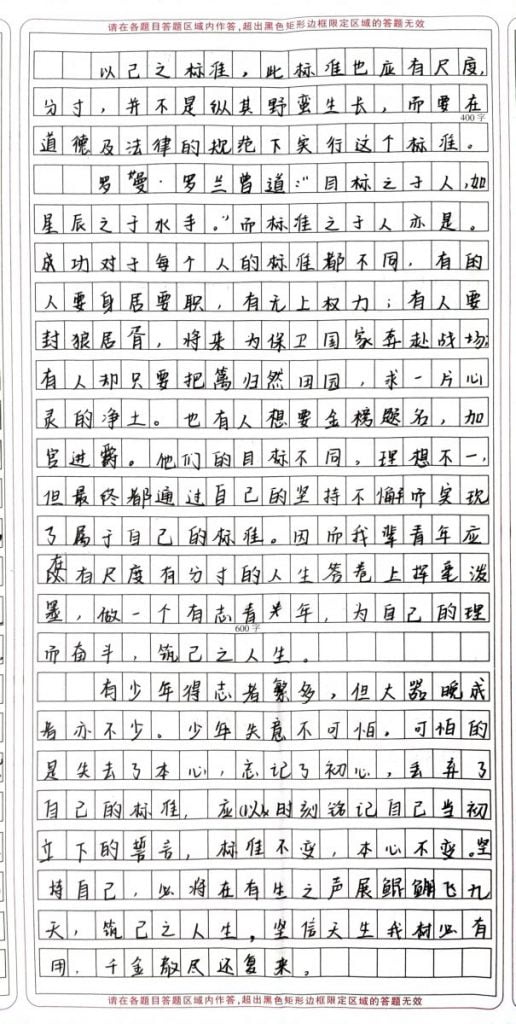 请在各题目答题区域内作答,超出黑色矩形边框限定区域的答题无效
以己之标准，此标准也应有尺度，
分寸，并不是纵其野蛮生长，而要在
400字
道德及法律的规范下实行这个标准。
罗曼·罗兰曾道:“目标之于人,如
星辰之于水手。”而标准之于人亦是。
成功对于每个人的标准都不同，有的
人要身居要职，有无上权力；有人要
封狼居胥，将来为保卫国家奔赴战场
有人却只要把篱归然田园，求一片心
灵的净土。也有人想要金榜题名，加
官进爵。他们的目标不同，理想不一，
但最终都通过自己的坚持不懈而实现
了属于自己的标准。因而我辈青年应
在有尺度有分寸的人生答卷上挥毫泼
墨，做一个有志青年，为自己的理
600字
而奋斗，筑己之人生。
有少年得志者繁多，但大器晚成
者亦不少。少年失意不可怕。可怕的
是失去了本心，忘记了初心，丢弃了
自己的标准，应以时刻铭记自己当初
立下的誓言，标准不变，本心不变。坚
持自己，必将在有生之声展鲲鹏飞九
天，筑己之人生。坚信天生我材必有
用，千金散尽还复来。
请在各题目答题区域内作答,超出黑色矩形边框限定区域的答题无效